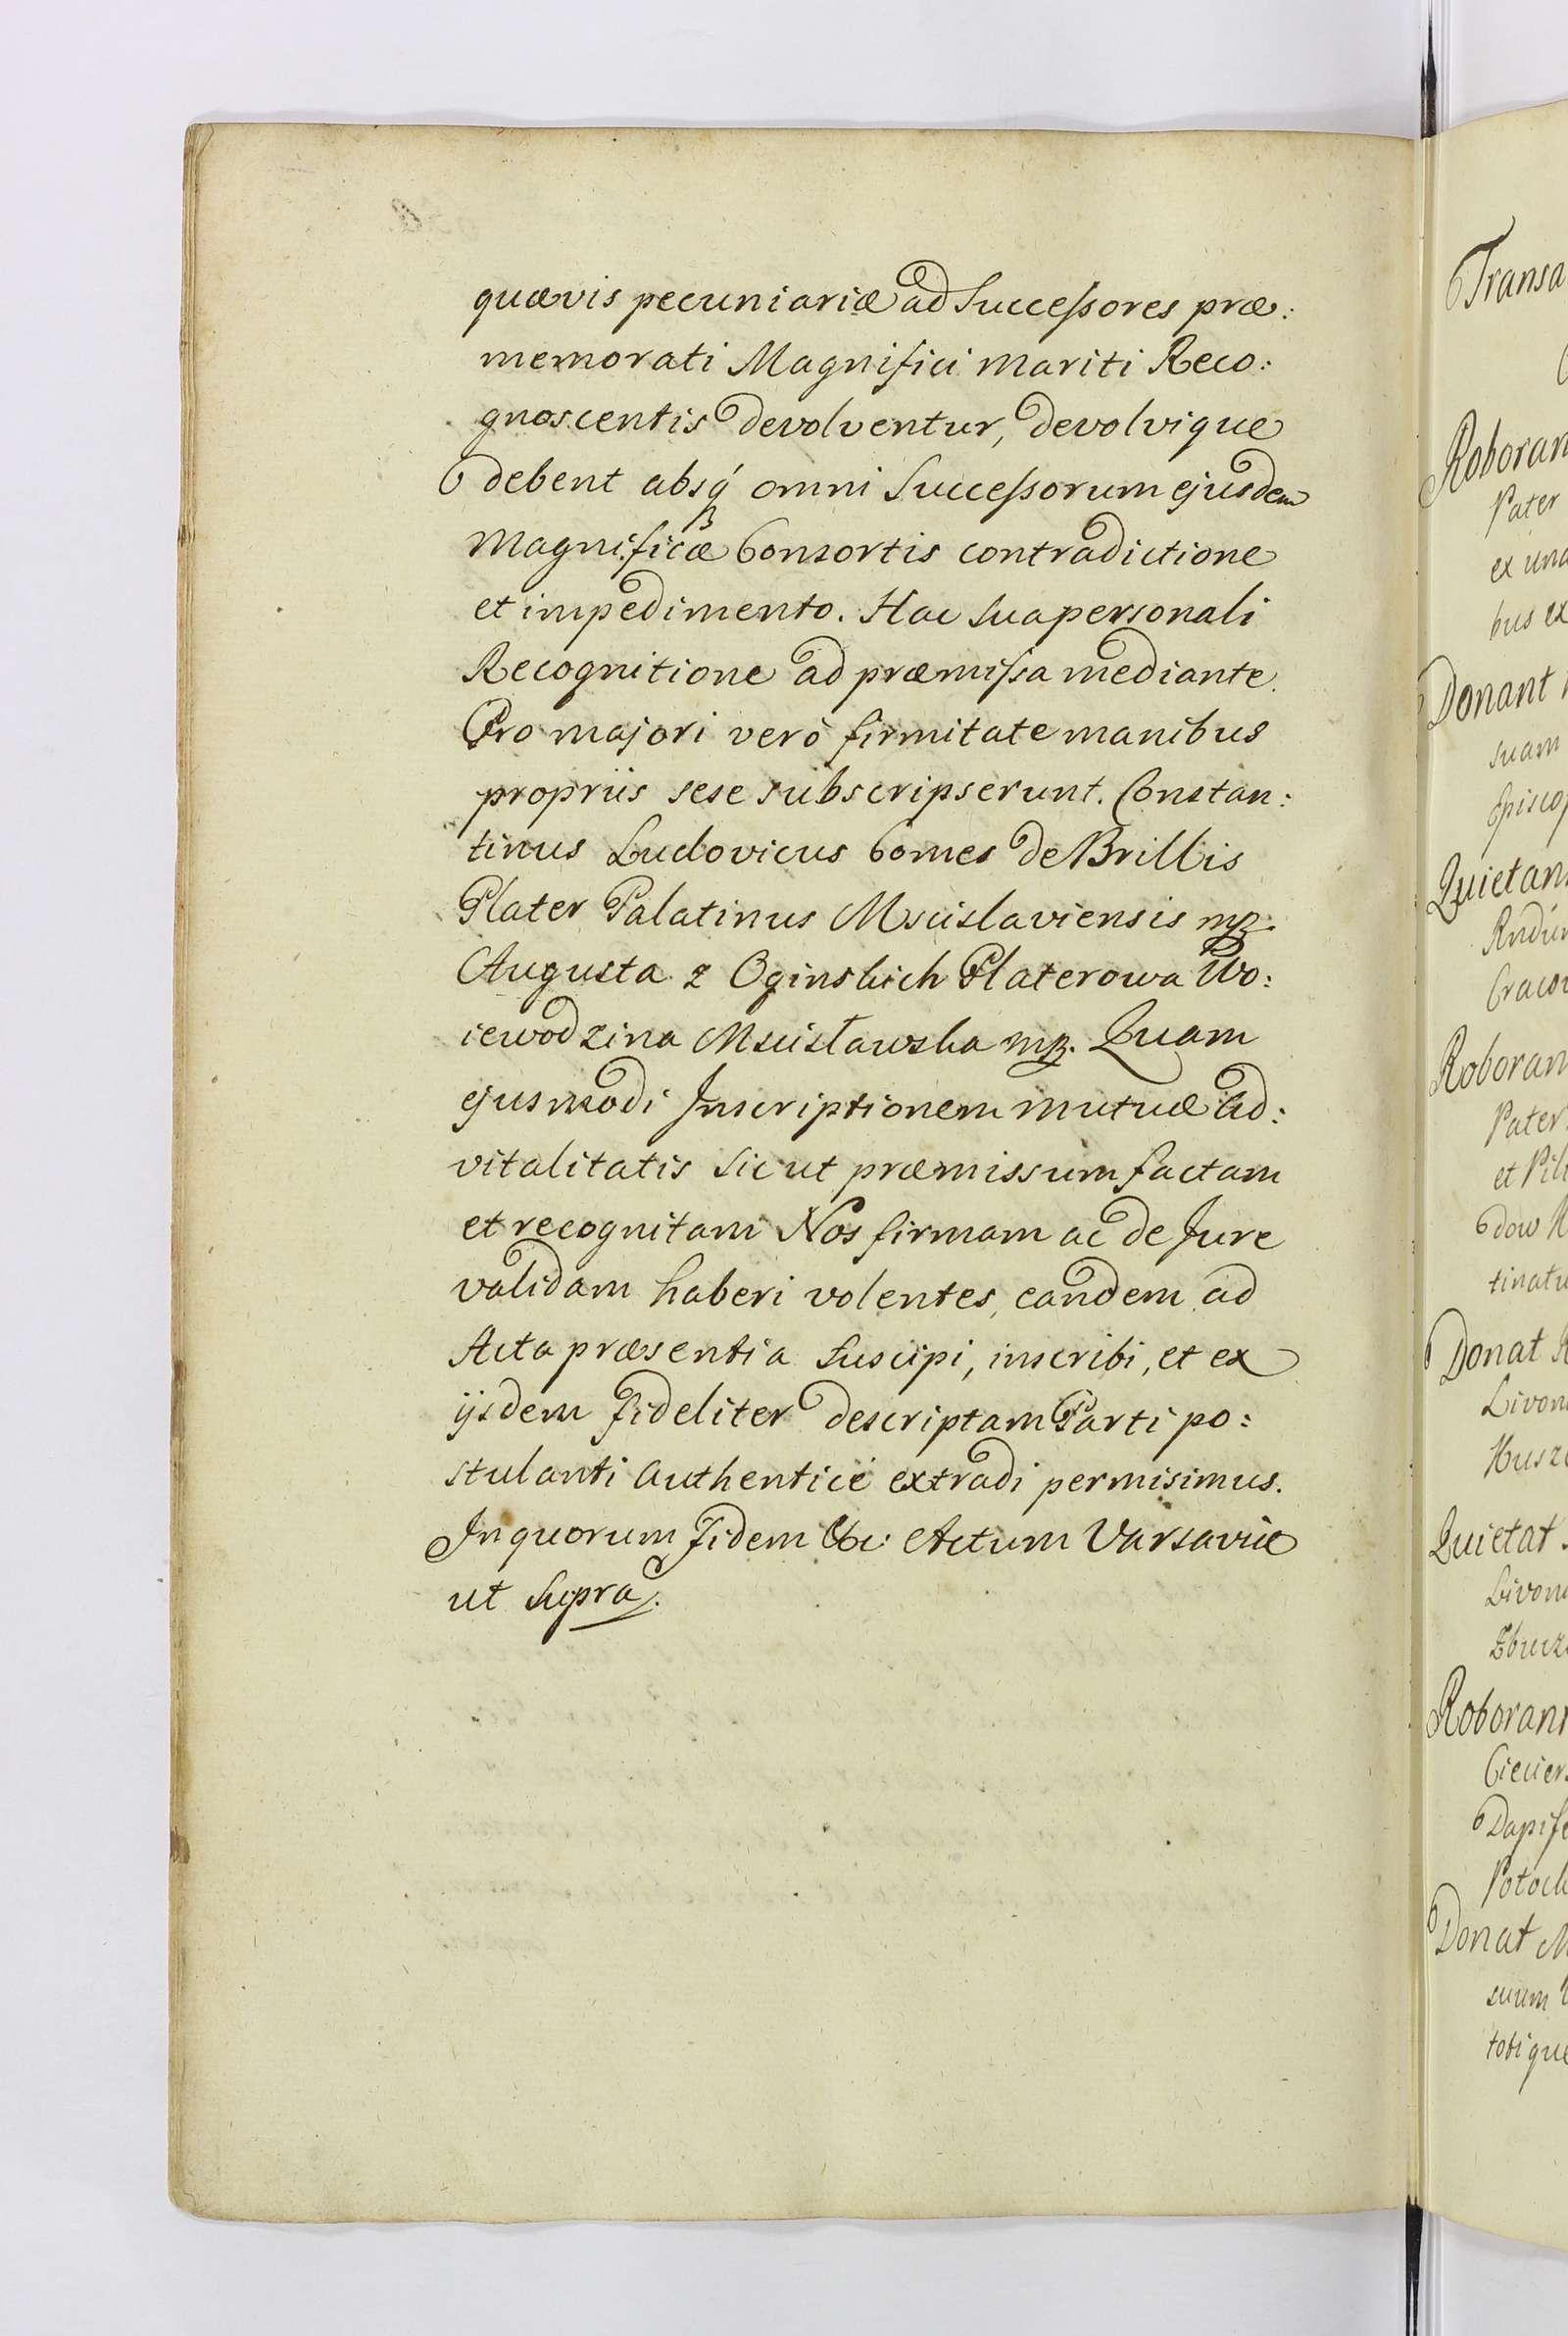 quævis pecuniariæ ad Successores præ:
memorati Magnifici mariti Reco:
gnoscentis devolventur, devolvique
debent absq́ omni Successorum ejusdem
Magnificæ Consortis contradictione
et impedimento. Hac sua personali
Recognitione ad præmissa mediante.
Pro majori verò firmitate manibus
propriis sese subscripserunt. Constan:
tinus Ludovicus Comes de Brillis
Plater Palatinus Mscislaviensis mp.
Augusta z Oginskich Platerowa Wo:
iewodzina Mscisławska mp. Quam
ejusmodi Inscriptionem mutuæ ad:
vitalitatis sicut præmissum factam
et recognitam Nos firmam ac de Jure
validam haberi volentes, eandem ad
Acta præsentia suscipi, inscribi, et ex
ijsdem fideliter descriptam Parti po:
stulanti authenticè extradi permisimus.
In quorum Fidem &c: Actum Varsaviæ
ut Supra.
Transa
Roboran
Pater
ex una
bus ex
Donant
suam
Episcop
Quietan
Cracov
Roboran
Pater
et Pil
dow
tinatu
Donat
Livon
Husz
Quietat
Livon
Roborant
Ciecier
Dapife
Potock
Donat M
suum
totique